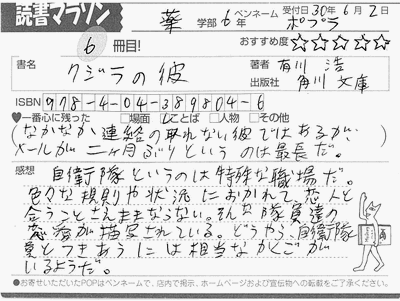 読書マラソン 薬学部6年 ペンネーム ポプラ 受付日30年6月2日
6冊目! おすすめ度☆☆☆☆☆
書名 クジラの彼 著者 有川 浩
出版社 角川文庫
ISBN 978-4-04-389804-6
●一番心に残った □場面 □ことば □人物 □その他
なかなか連絡の取れない彼ではあるが、
メールが二ヶ月ぶりというのは最長だ。
感想 自衛隊というのは特殊な職場だ。
色々な規則や状況におかれて恋人と
会うことさえままならない。そんな隊員達の
恋愛が描写されている。どうやら、自衛隊
員とつきあうには相当なかくごが
いるようだ。
●お寄せいただいたPOPはペンネームで、店内で掲示、ホームページおよび宣伝物への転載をご了承ください。